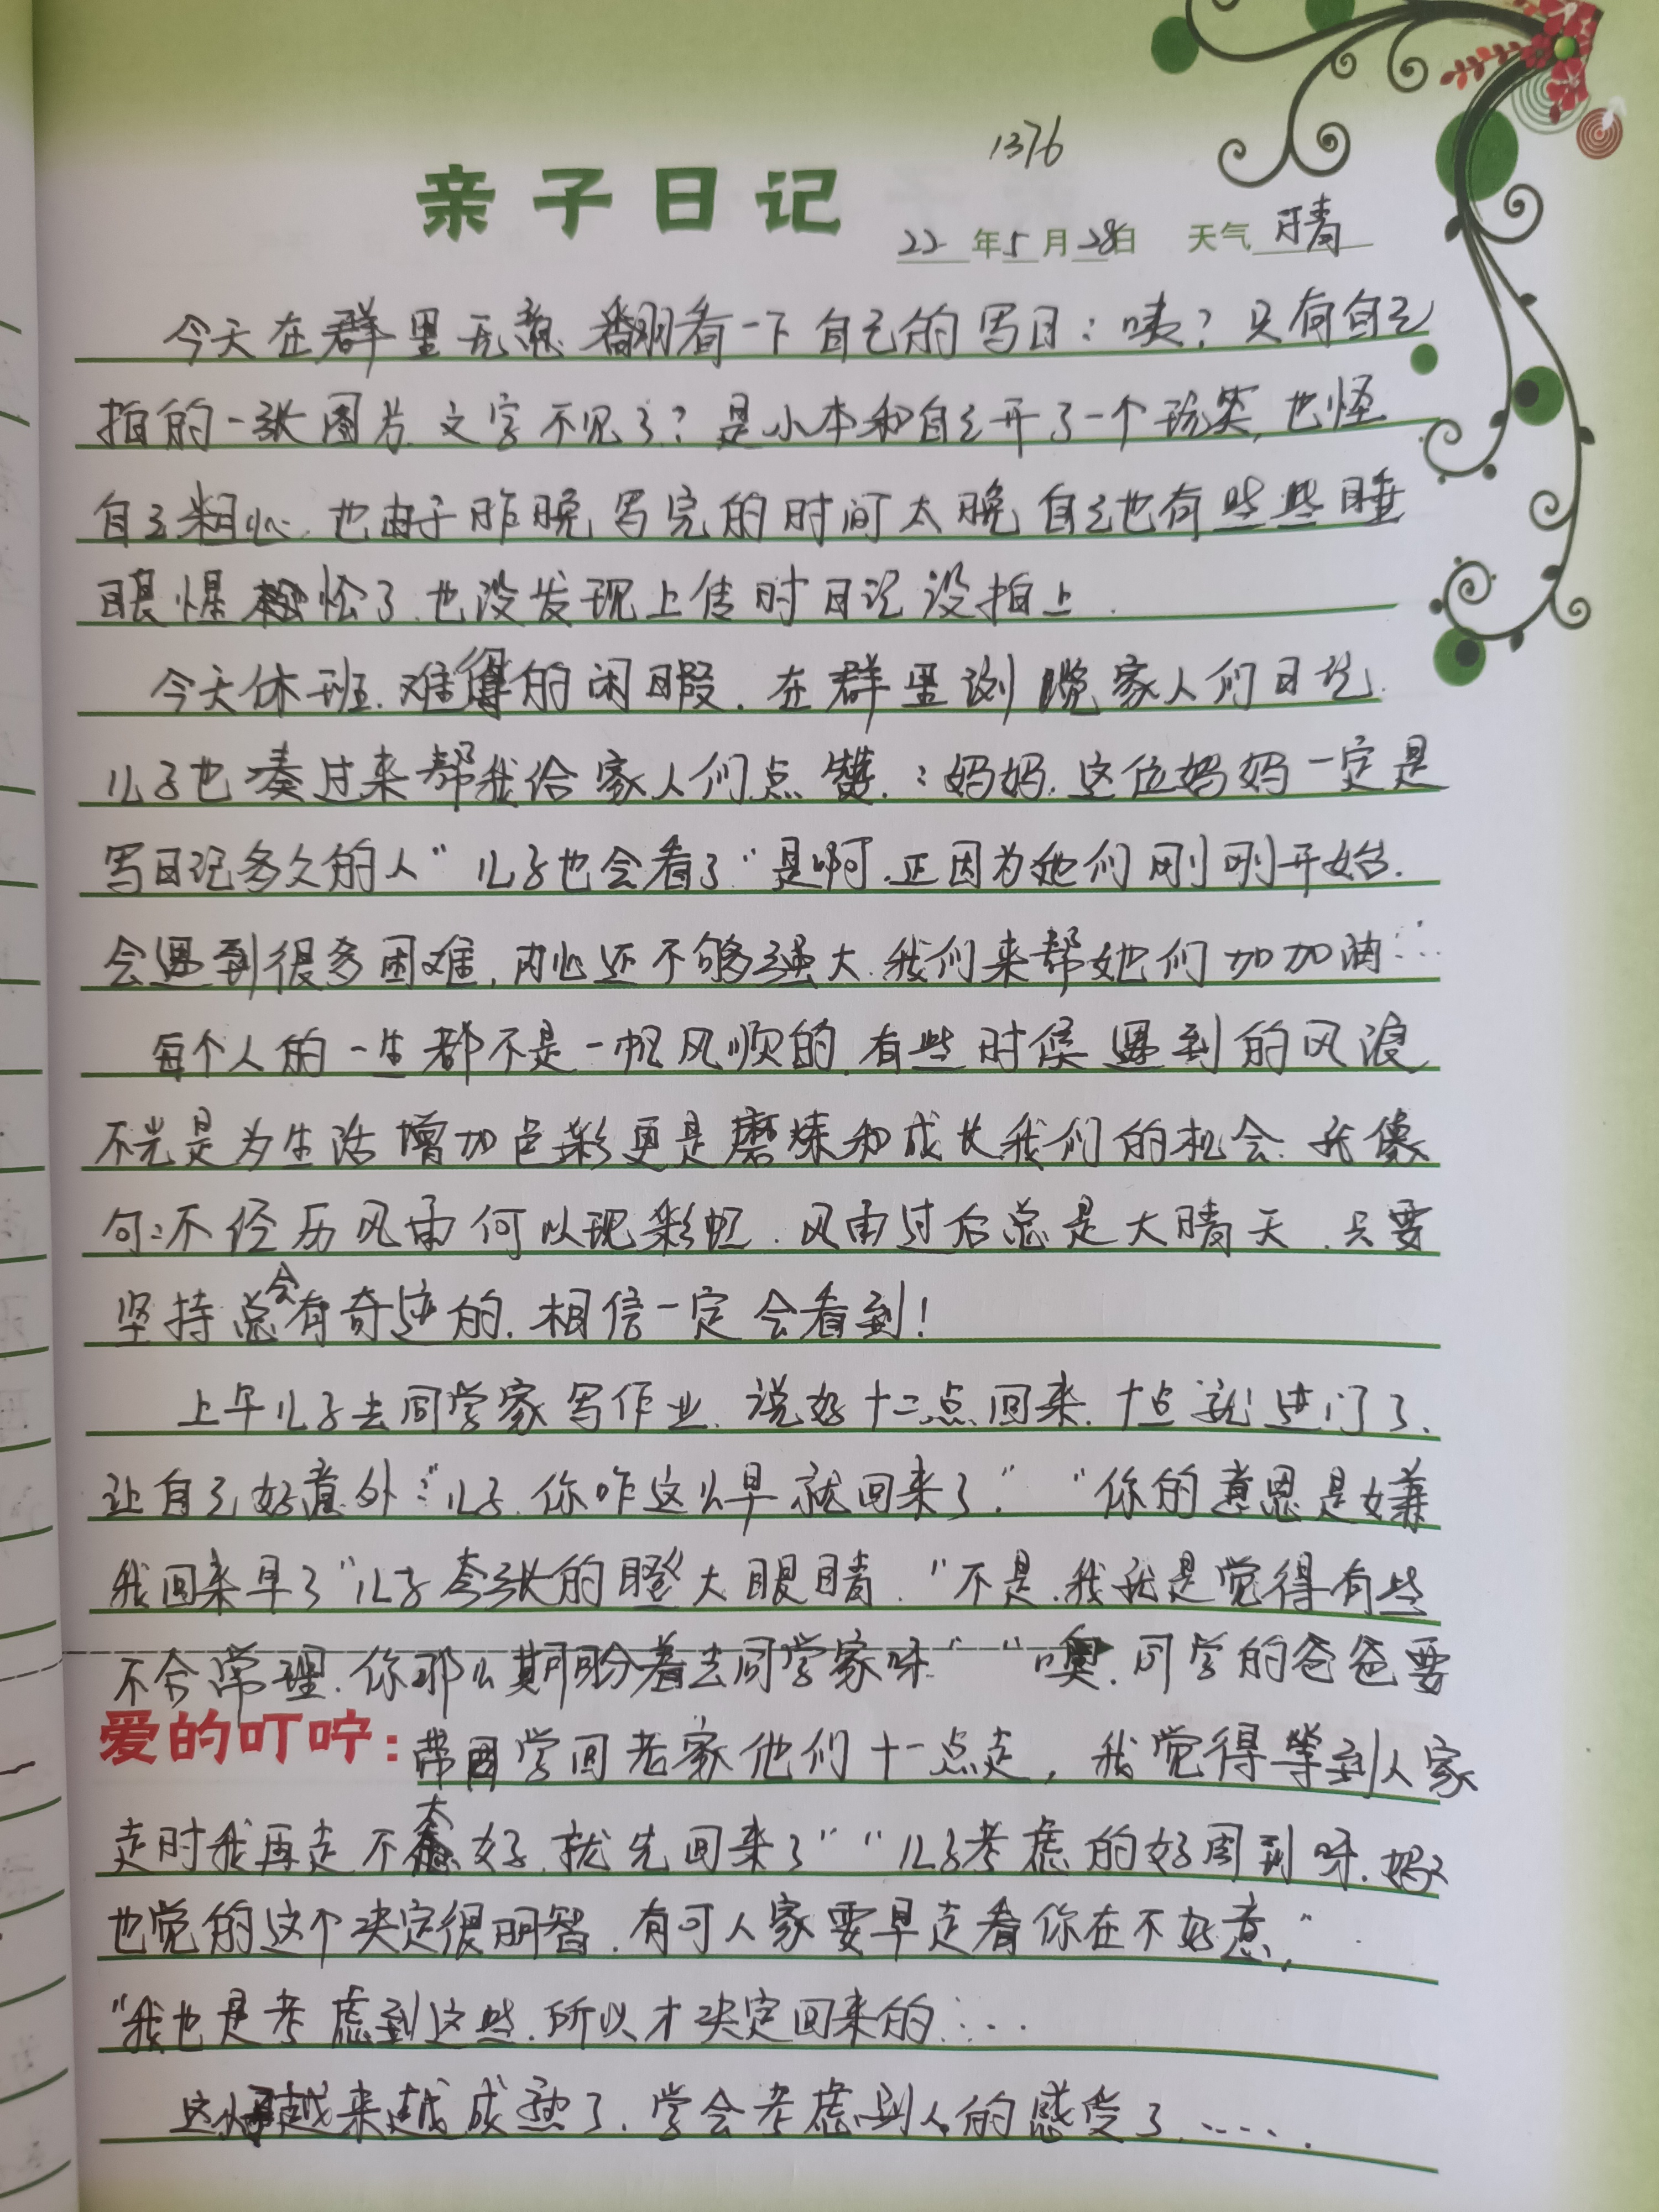 1376
亲子日记
22年5月28日 天气 晴
今天在群里无意翻看一下自己的写日:咦?只有自己
拍的一张图片.文字不见了?是小本和自己开了一个玩笑,也怪
自己粗心.也由于昨晚写完的时间太晚自己也有些些睡
眼惺忪了.也没发现上传时日记没拍上.
今天休班.难得的闲暇.在群里浏览家人们日记.
儿子也凑过来帮我给家人们点赞.:妈妈.这位妈妈一定是
写日记多久的人"儿子也会看了"是啊.正因为她们刚刚开始.
会遇到很多困难,内心还不够强大.我们来帮她们加加油……
每个人的一生都不是一帆风顺的.有些时候遇到的风浪
不光是为生活增加色彩更是磨炼和成长我们的机会.我像
句:不经历风雨何以现彩虹.风雨过后总是大晴天.只要
坚持总会有奇迹的.相信一定会看到!
上午儿子去同学家写作业.说好十二点回来.十点就进门了.
让自己好意外:"儿子.你咋这么早就回来了.""你的意思是嫌
我回来早了"儿子夸张的瞪大眼睛."不是.我就是觉得有些
不合常理.你那么期盼着去同学家呀""噢.同学的爸爸要
爱的叮咛:带同学回老家他们十一点走,我觉得等到人家
走时我再走不太好.就先回来了""儿子考虑的好周到呀.妈妈
也觉的这个决定很明智.有可人家要早走看你在不好意."
"我也是考虑到这些.所以才决定回来的……
这越来越成熟了.学会考虑别人的感受了……